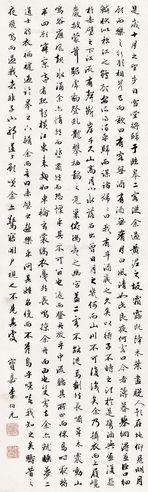 是歲十月之望步自雪堂將歸于臨皋二客從余過黃泥之坂霜露既降木葉盡脫人影在地仰見明月
顧而樂之行歌相答已而歎曰有客無酒有酒無肴月白風清如此良夜何客曰今者薄暮舉網得魚巨口細
鱗狀似松江之鱸顧安所得酒乎歸而謀諸婦婦曰我有斗酒藏之久矣以待子不時之須於是攜酒與魚復游
於赤壁之下江流有聲斷岸千尺山高月小水落石出曾日月之幾何而江山不可復識矣余乃攝衣而上履巉
巖披蒙茸踞虎豹登虬龍攀棲鶻之危巢俯馮夷之幽宮蓋二客不能從焉劃然長嘯草木震動山
鳴谷應風起水涌余亦悄然而悲肅然而恐凜乎其不可留也反而登舟放乎中流聽其所止而休焉時夜將
半四顧寂寥適有孤鶴橫江東來翅如車輪玄裳縞衣戛然長鳴掠余舟而西也須臾客去余亦就睡夢二
道士羽衣蹁躚過臨皋之下揖余而言曰赤壁之遊樂乎問其姓名俛而不答嗚呼噫嘻我知之矣疇昔之
夜飛鳴而過我者非子也耶道士顧笑余亦驚寤開戶視之不見其處 李